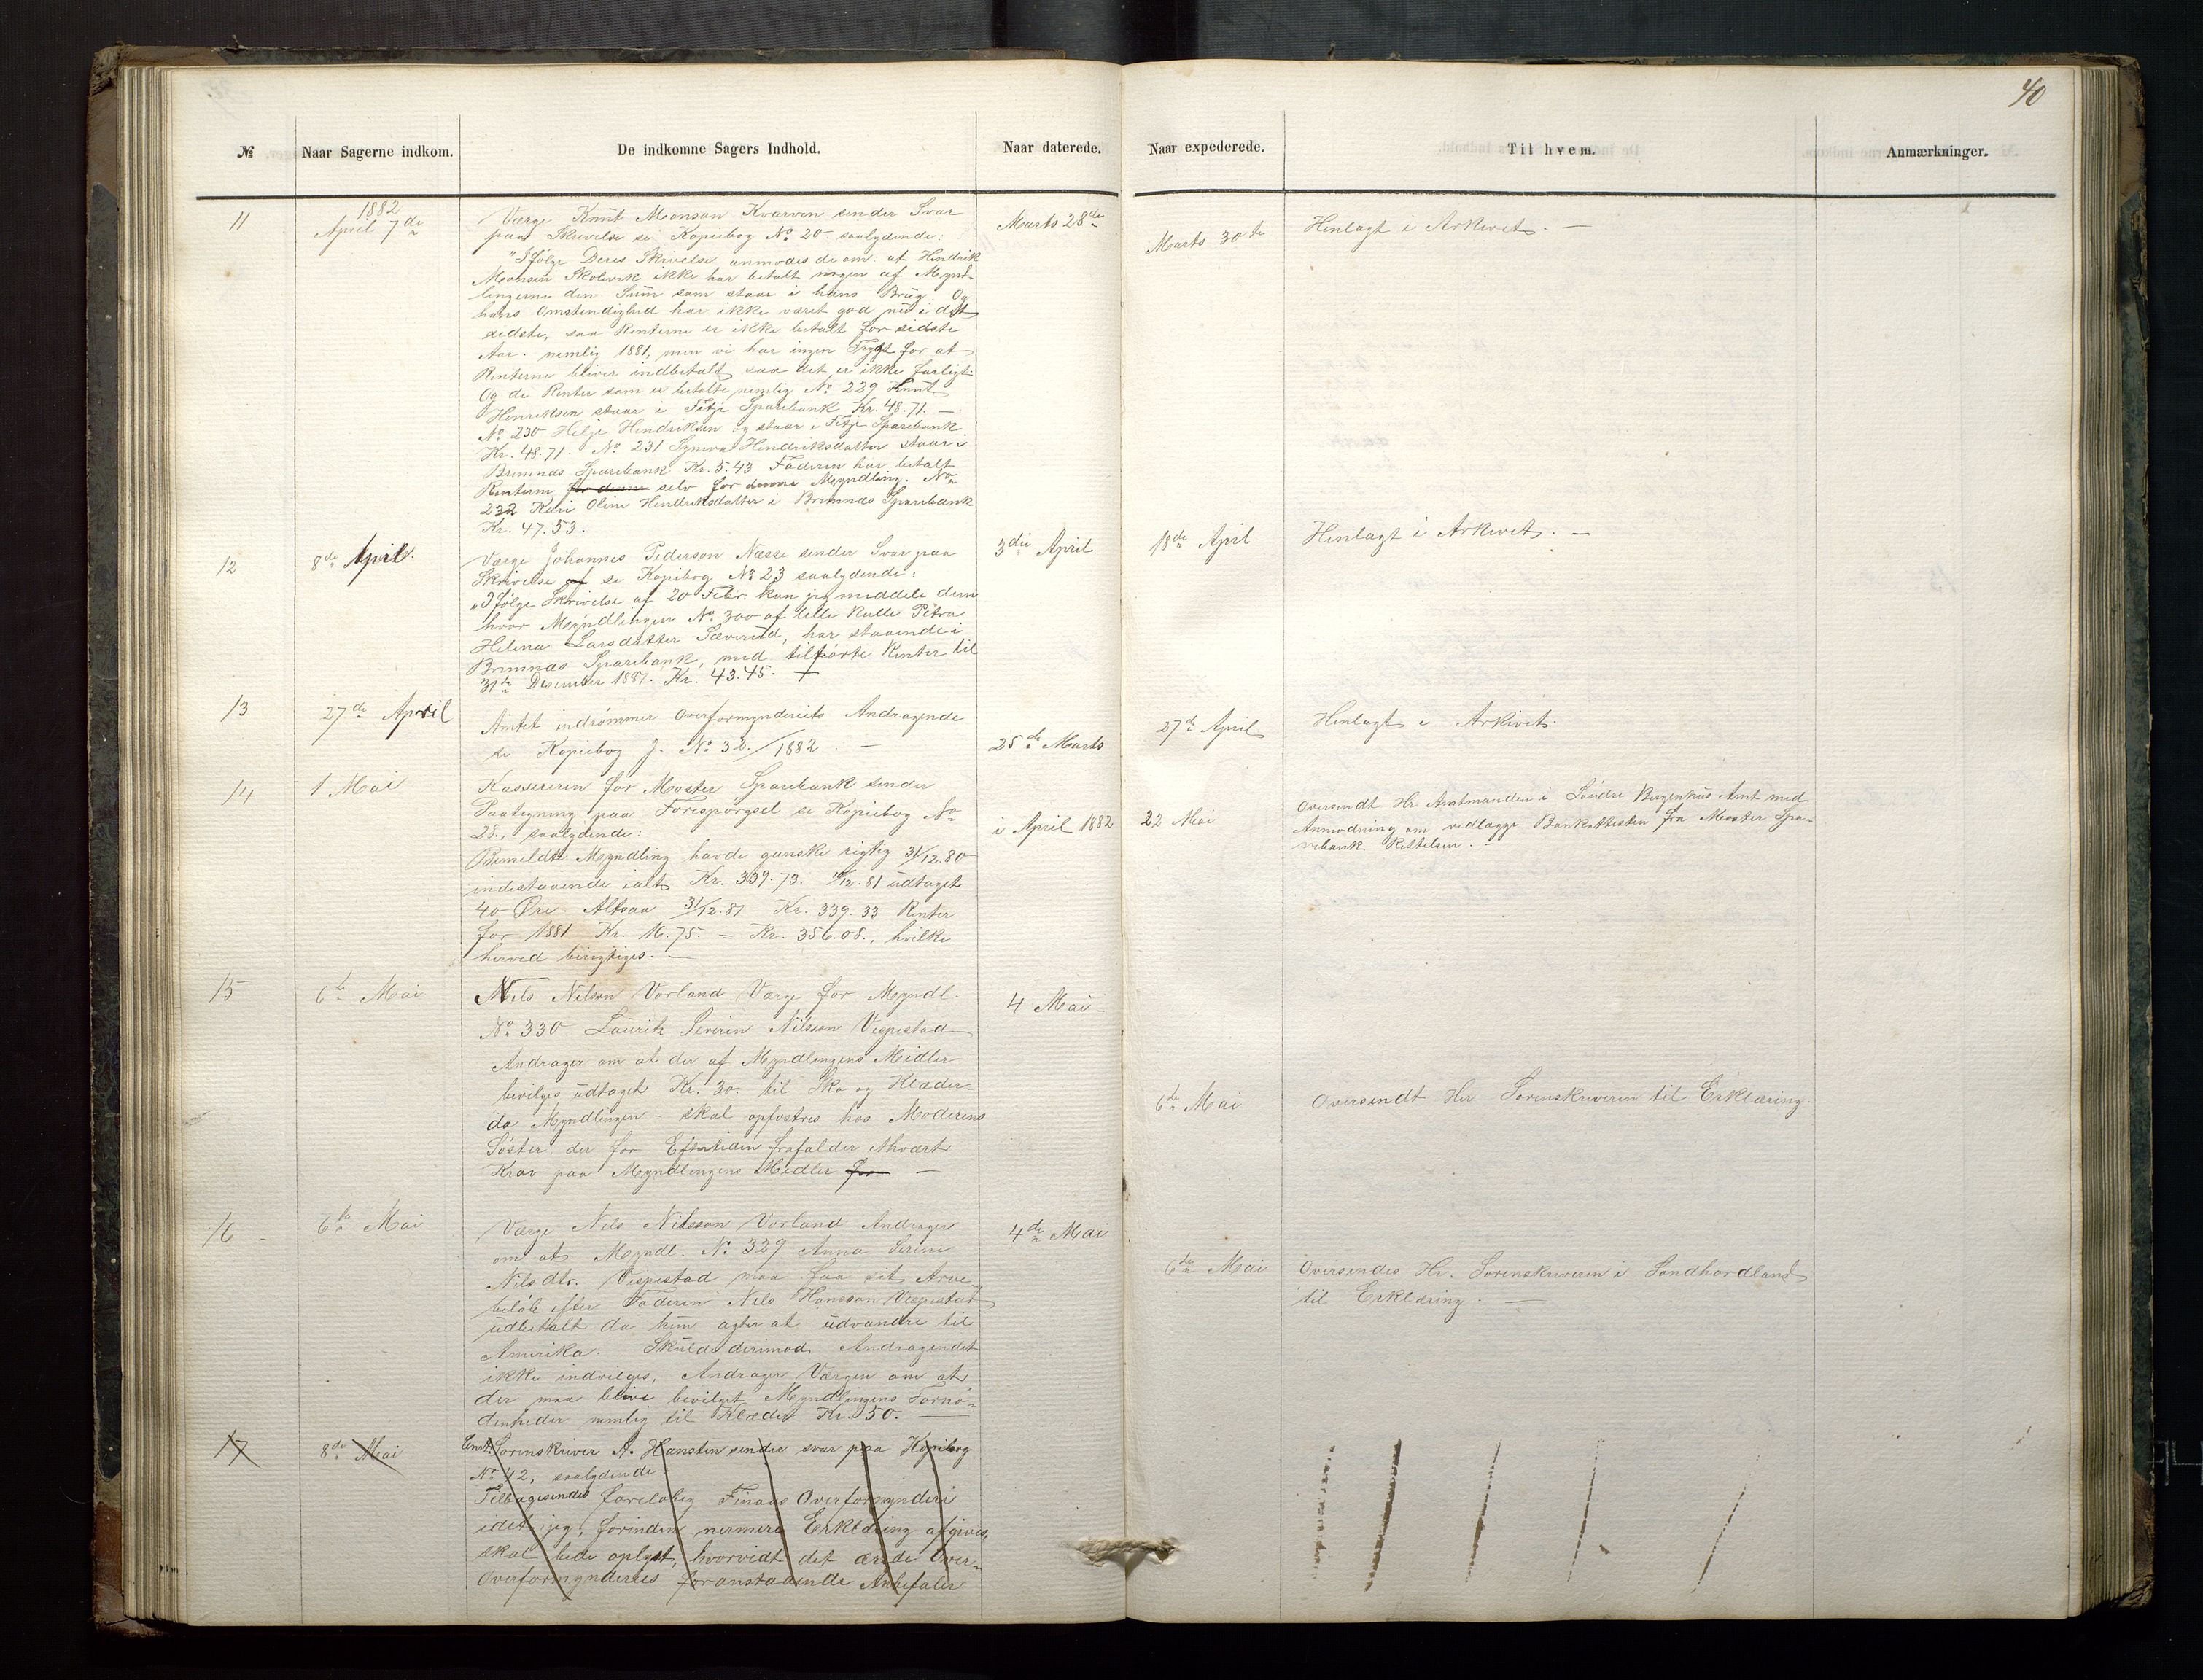 40
№ Naar Sagerne indkom. De indkomne Sagers Indhold. Naar daterede. Naar expederede. Til hvem. Anmærkninger.
1882
11 April 7de Værge Knut Monsøn Kvarven sender Svar
paa Skrivelse se Kopiebog No 20 saalydende:
"Ifølge Deres Skrivelse anmodes de om: at Hendrik
Monsen Skolevik ikke har betalt nogen af Mynd-
lingerne den Sum som staar i hans Brug: Og
hans Omstendighed har ikke været god nu i det
sidste, saa Renterne er ikke betalt for sidste
Aar. nemlig 1881, men vi har ingen Frygt for at
Renterne bliver indbetalt saa det er ikke farligt.
Og de Renter som er betalte nemlig No 229 Knut
Henriksen staar i Fitje Sparebank Kr. 48.71. —
No 230 Helje Hendriksen og staar i Fitje Sparebank
Kr. 48.71. No 231 Syneva Hendriksdatter staar i
Bremnæs Sparebank Kr. 5.43 Faderen har betalt
Renterne for denne selv for denne Myndling. No
232 Kari Oline Hendriksdatter i Bremnæs Sparebank
Kr. 47.53.
Marts 28de
Marts 30te Henlagt i Arkivet. —
12 8de April. Værge Johannes Pederson Næsse sender Svar paa
Skrivelse af se Kopiebog No 23 saalydende:
"Ifølge Skrivelse af 20 Febr. kan jeg meddele dem
hvor Myndlingen No 300 af lille Kulle Petra
Helena Larsdatter Sæverud, har staaende i
Bremnæs Sparebank, med tilførte Renter til
31te Desember 1881. Kr. 43.45. —
3die April
18de April Henlagt i Arkivet. —
13 27de April Amtet indrømmer Overformynderiets Andragende
se Kopiebog J. No 32/1882. —
25de Marts
27de April Henlagt i Arkivet.
14 1 Mai Kassereren for Moster Sparebank sender
Paategning paa Forespørgsel se Kopiebog No
28., saalydende:
Bemeldte Myndling havde ganske rigtig 31/12.80
indestaaende ialt Kr. 339.73. 10/12.81 udtaget
40 Øre. Altsaa 31/12.81 Kr. 339.33 Renter
for 1881 Kr. 16.75. = Kr. 356.08., hvilke
herved berigtiges. —
i April 1882
22 Mai Oversendt Hr Amtmanden i Søndre Bergenhus Amt med
Anmodning om vedlægge Bankattesten fra Moster Spa-
rebank Rettelsen. —
15 6te Mai Nils Nilson Vorland Værge for Myndl.
No 330 Lauritz Severin Nilsson Vespestad
Andrager om at der af Myndlingens Midler
bevilges udtaget Kr. 30. til Sko og Klæder
da Myndlingen - skal opfostres hos Moderens
Søster der for Eftertiden frafalder ethvert
Krav paa Myndlingens Midler for —
4 Mai -
6te Mai Oversendt Hr Sorenskriveren til Erklæring.
16 - 6te Mai Værge Nils Nilsson Vorland Andrager
om at Myndl. No 329 Anna Serine
Nilsdtr. Vespestad maa faa sit Arve-
beløb efter Faderen Nils Hansson Vespestad
udbetalt da hun agter at udvandre til
Amerika. Skulde derimod Andragendet
ikke indvilges, Andrager Værgen om at
der maa blive bevilget Myndlingens Fornø-
denheder nemlig til Klæder Kr. 50. —
4de Mai
6te Mai Oversendes Hr. Sorenskriveren i Søndhordland
til Erklæring. —
17 8de Mai Const. Sorenskriver A. Hansten sender svar paa Kopiebog
No 42, saalydende
Tilbagesendes foreløbig Finaas Overformynderi
idet jeg, forinden nermere Erklæring afgives,
skal bede oplyst, hvorvidt det ærede Over-
Overformynderies foranstaaende Anbefaler